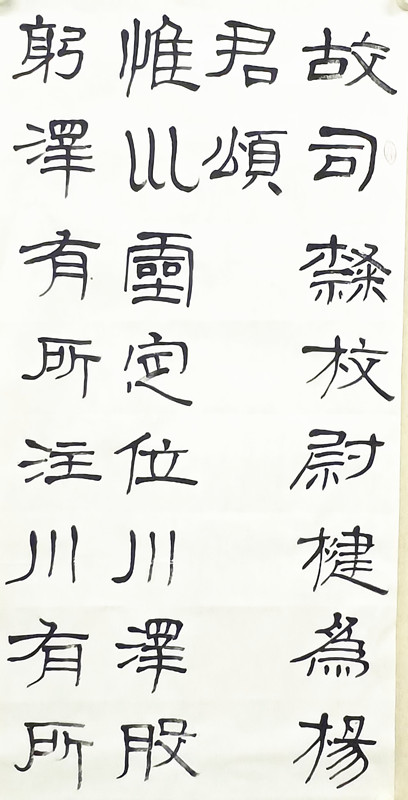 故司隸校尉楗爲楊
君頌
惟巛靈定位川澤股
躬澤有所注川有所